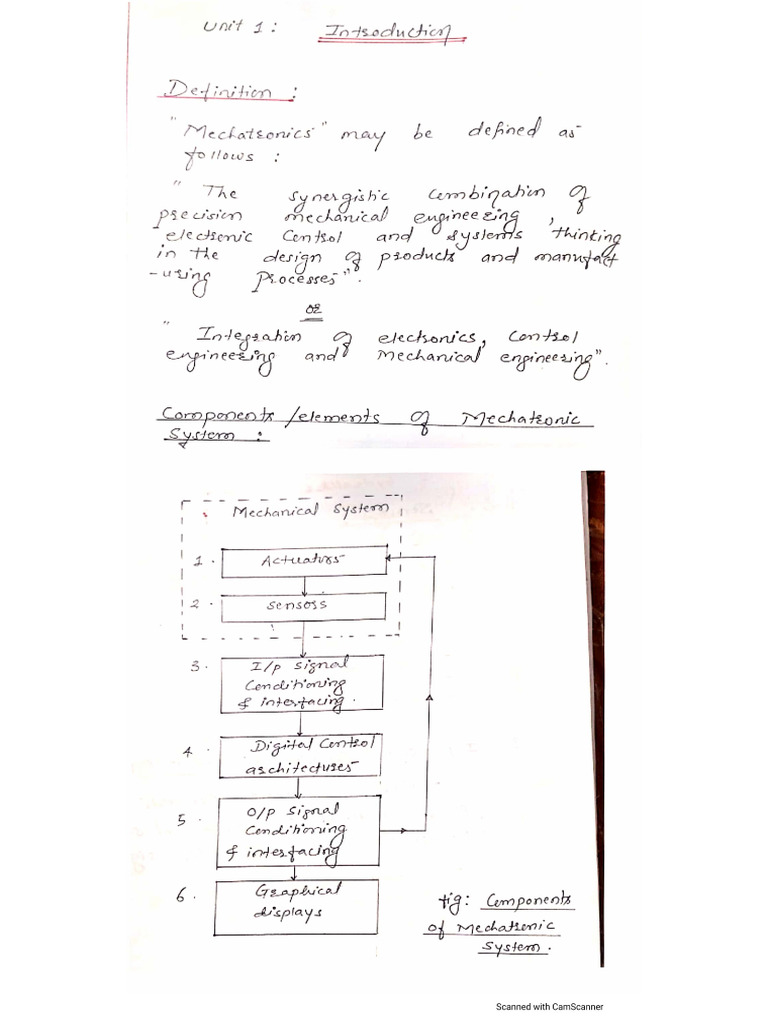 Unit 1 : Introduction
Definition :
"Mechatronics" may be defined as
follows :
"The synergistic combination of
precision mechanical engineering ,
electronic control and systems thinking
in the design of products and manufact
-uring processes".
OR
"Integration of electronics, control
engineering and Mechanical engineering".
Components /elements of Mechatronic
System :
Mechanical System
1 . Actuators
2 . Sensors
3 . I/p signal
Conditioning
& interfacing .
4 . Digital Control
architectures
5 . O/p signal
Conditioning
& interfacing
6 . Graphical
displays
fig: Components
of Mechatronic
System .
Scanned with CamScanner